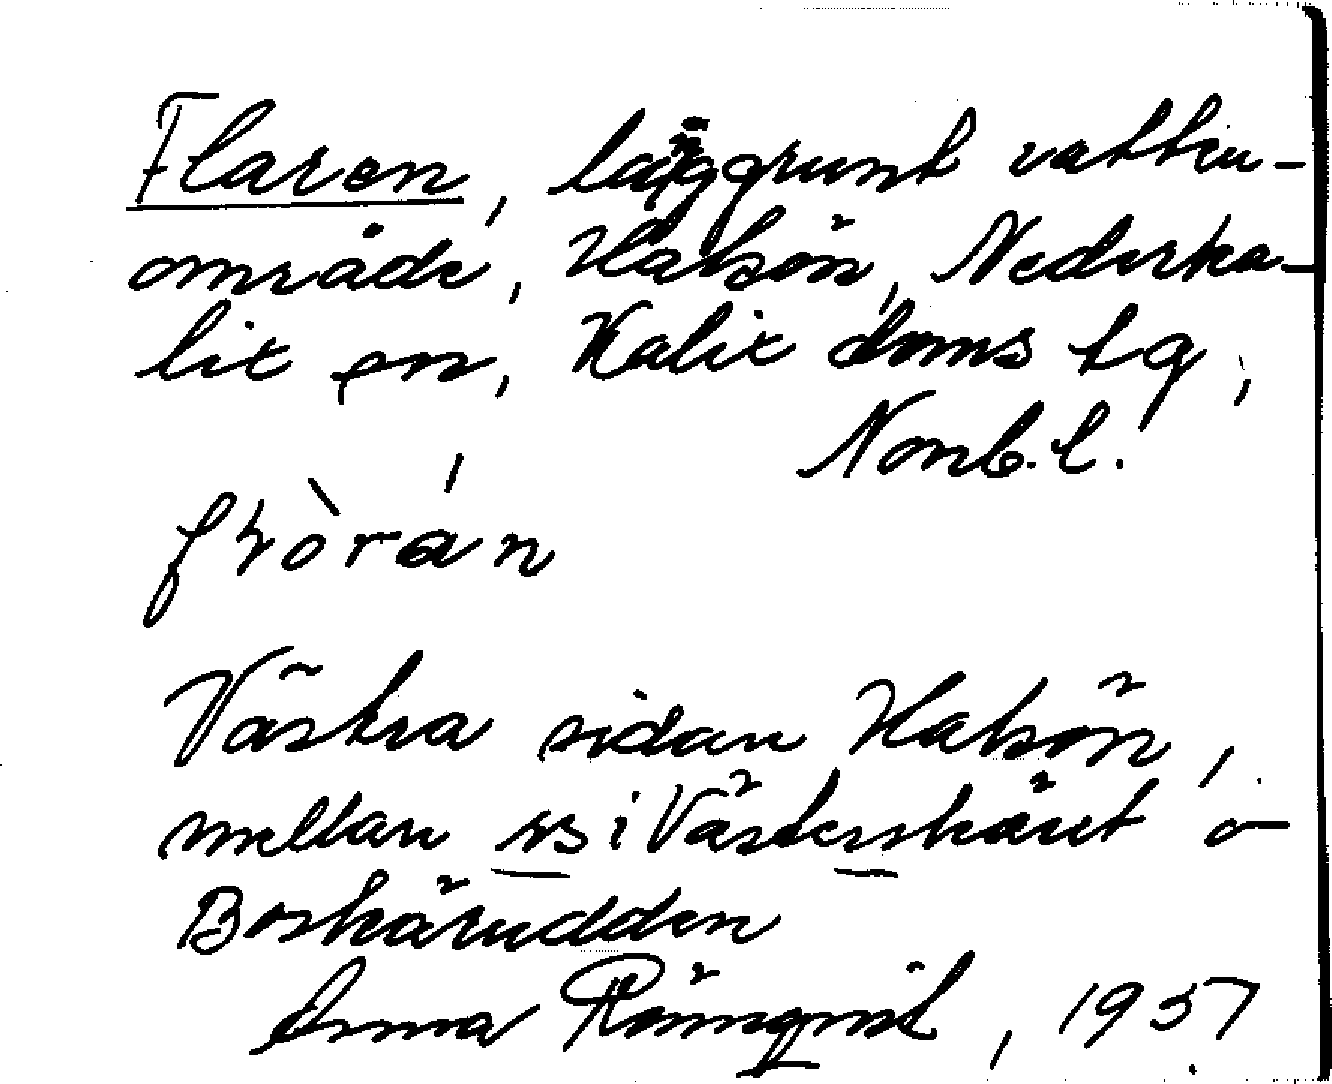 Flaren, långgrunt vatten-
område, Hatsön, Nederka-
lix sn, Kalix doms tg,
Norrb. l.
Västra sidan Hatsön,
mellan rs i Västerskäret o
Boskärudden
Erna Rönnqvist, 1957